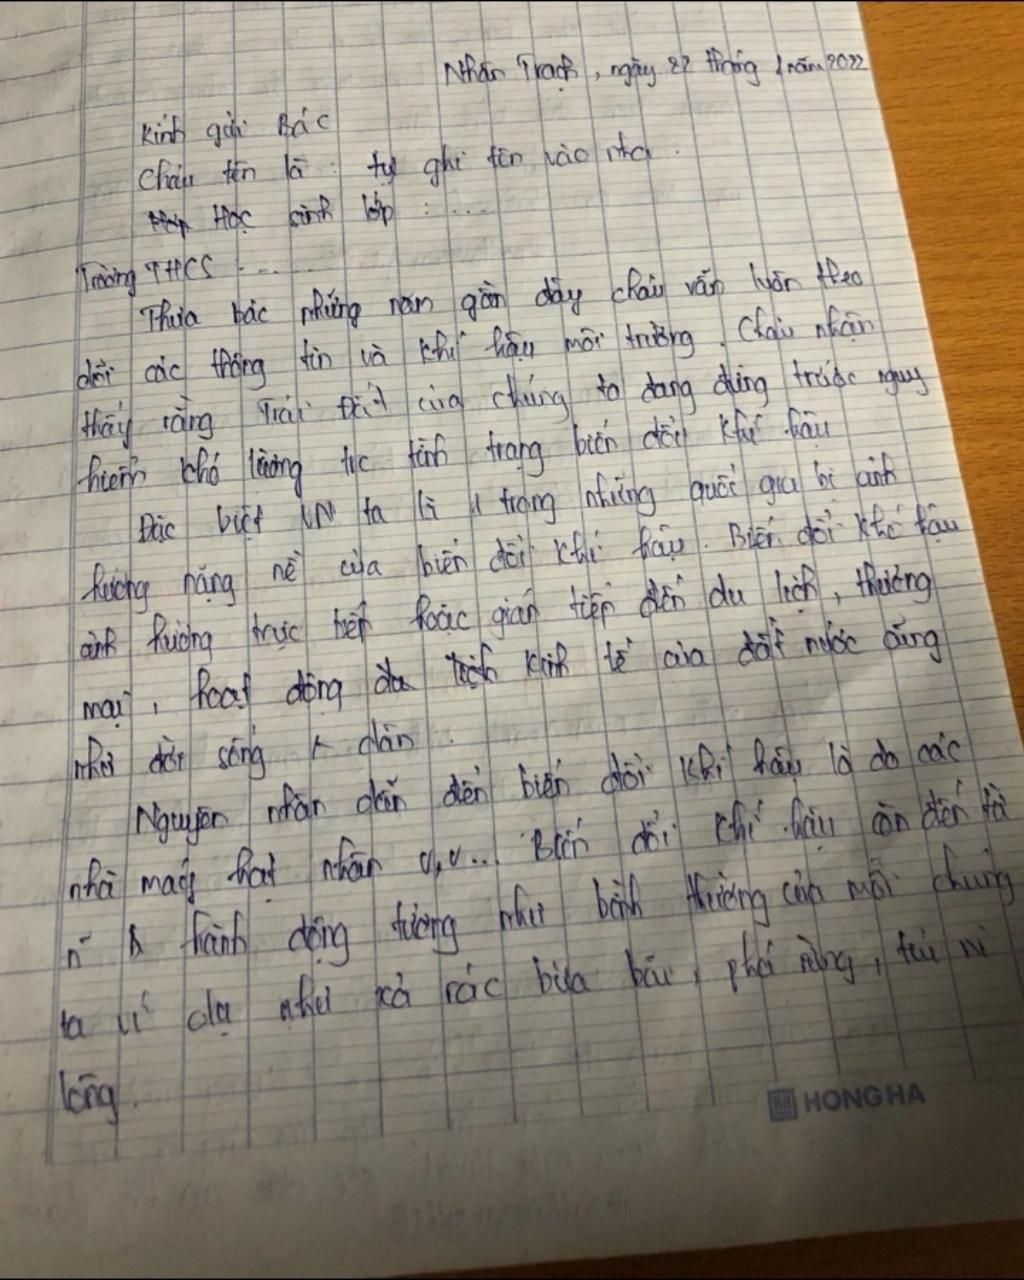 Nhân Trạch, ngày 22 tháng 1 năm 2022
Kính gửi Bác
Cháu tên là : tự ghi tên vào nha.
Học sinh lớp : ....
Trường THCS ....
Thưa bác những năm gần đây cháu vẫn luôn theo
dõi các thông tin và khí hậu môi trường. Cháu nhận
thấy rằng Trái Đất của chúng ta đang đứng trước nguy
hiểm khó lường tức tình trạng biến đổi khí hậu
Đặc biệt VN ta là 1 trong những quốc gia bị ảnh
hưởng nặng nề của biến đổi khí hậu. Biến đổi khí hậu
ảnh hưởng trực tiếp hoặc gián tiếp đến du lịch, thương
mại, hoạt động du lịch kinh tế của đất nước cũng
như đời sống dân.
Nguyên nhân dẫn đến biến đổi khí hậu là do các
nhà máy hạt nhân v,v... Biến đổi khí hậu còn đến từ
hành động tưởng như bình thường của mỗi chúng
ta ví dụ như xả rác bừa bãi, phá rừng, túi ni
lông.
HONG HA